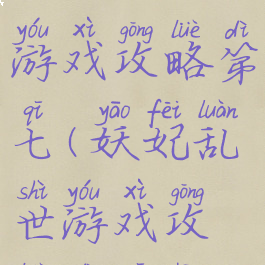 yóu xì gōng lüè dì
游戏攻略第
qī yāo fēi luàn
七(妖妃乱
shì yóu xì gōng
世游戏攻